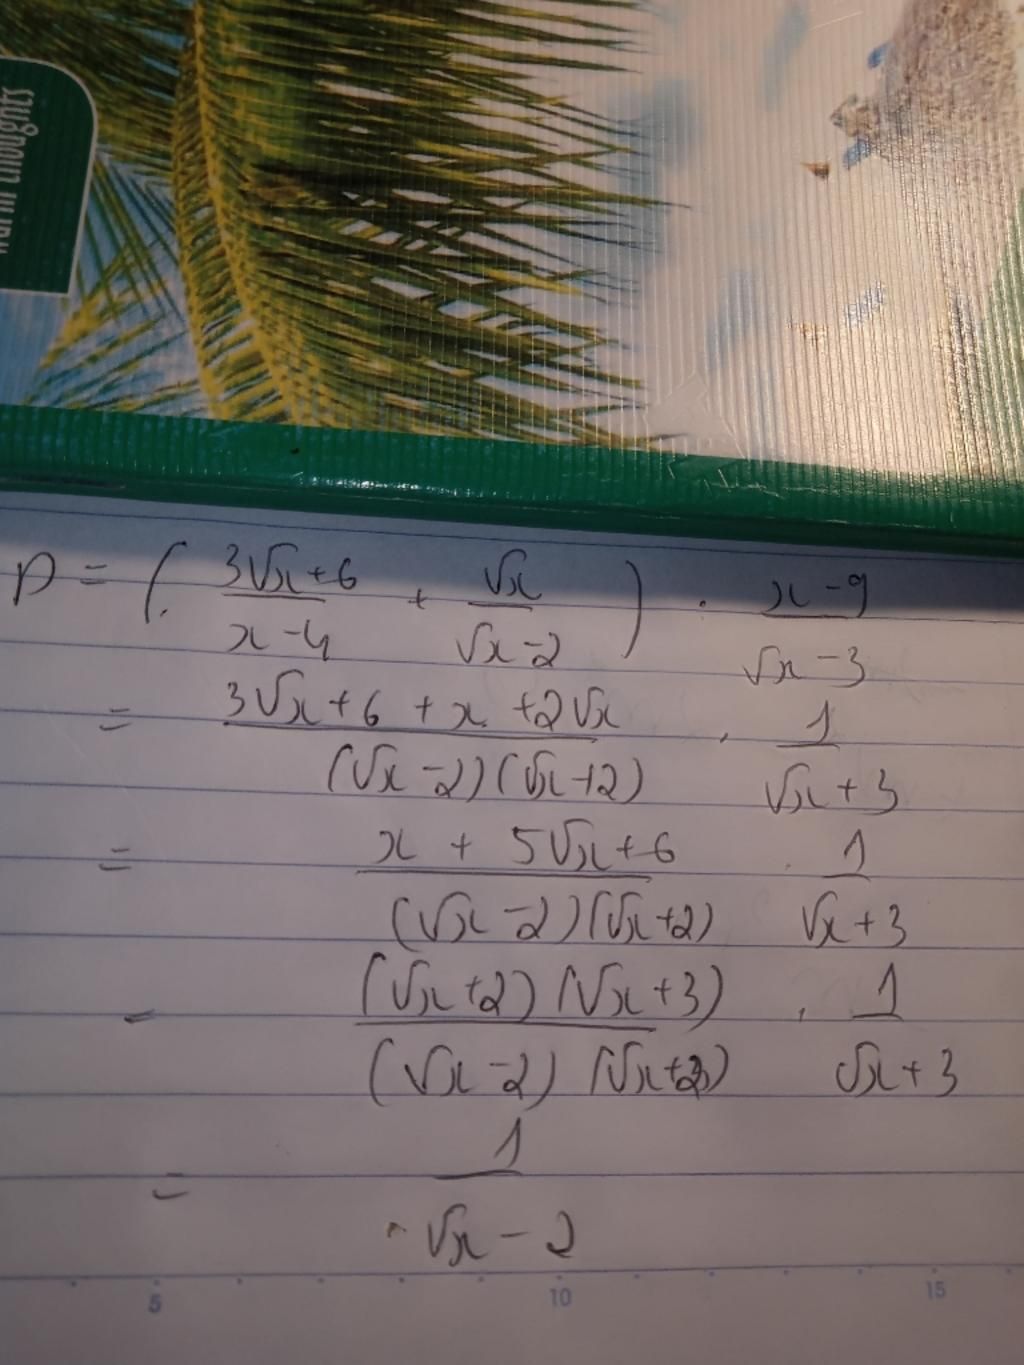 warm thoughts
P = ( (3√x+6)/(x-4) + √x/(√x-2) ) . (x-9)/(√x-3)
= (3√x+6+x+2√x)/((√x-2)(√x+2)) . 1/(√x+3)
= (x+5√x+6)/((√x-2)(√x+2)) . 1/(√x+3)
= ((√x+2)(√x+3))/((√x-2)(√x+2)) . 1/(√x+3)
= 1/(√x-2)
5 10 15